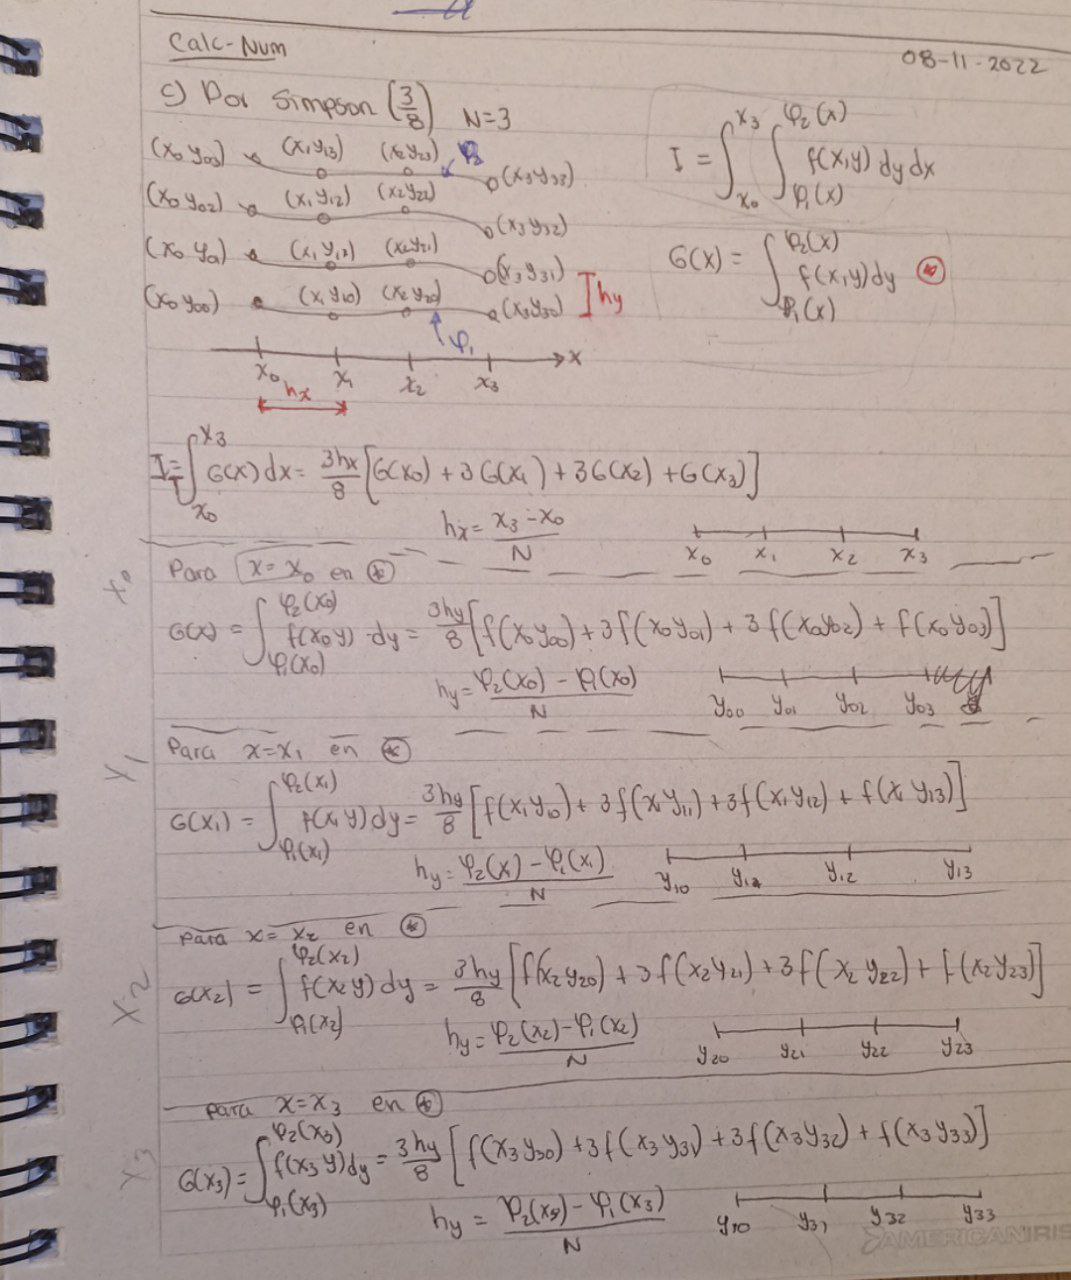 Calc-Num
08-11-2022
c) Por Simpson (3/8) N=3
I = ∫_{x₀}^{x₃} ∫_{φ₁(x)}^{φ₂(x)} f(x,y) dy dx
G(x) = ∫_{φ₁(x)}^{φ₂(x)} f(x,y) dy ⊛
(x₀ y₀₃) (x₁ y₁₃) (x₂ y₂₃) φ₂ (x₃ y₃₃)
(x₀ y₀₂) (x₁ y₁₂) (x₂ y₂₂) (x₃ y₃₂)
(x₀ y₀₁) (x₁ y₁₂) (x₂ y₂₁) (x₃ y₃₁)
(x₀ y₀₀) (x₁ y₁₀) (x₂ y₂₀) (x₃ y₃₀) hy
φ₁
x
x₀ x₁ x₂ x₃
hx
I = ∫_{x₀}^{x₃} G(x) dx = 3hx/8 [G(x₀) + 3G(x₁) + 3G(x₂) + G(x₃)]
hx = (x₃ - x₀)/N x₀ x₁ x₂ x₃
x₀
Para x = x₀ en ⊛
G(x) = ∫_{φ₁(x₀)}^{φ₂(x₀)} f(x₀ y) dy = 3hy/8 [f(x₀ y₀₀) + 3f(x₀ y₀₁) + 3f(x₀ y₀₂) + f(x₀ y₀₃)]
hy = (φ₂(x₀) - φ₁(x₀))/N y₀₀ y₀₁ y₀₂ y₀₃
Y₁
Para x = x₁ en ⊛
G(x₁) = ∫_{φ₁(x₁)}^{φ₂(x₁)} f(x₁ y) dy = 3hy/8 [f(x₁ y₁₀) + 3f(x₁ y₁₁) + 3f(x₁ y₁₂) + f(x₁ y₁₃)]
hy = (φ₂(x) - φ₁(x₁))/N y₁₀ y₁₂ y₁₃
X₂
Para x = x₂ en ⊛
G(x₂) = ∫_{φ₁(x₂)}^{φ₂(x₂)} f(x₂ y) dy = 3hy/8 [f(x₂ y₂₀) + 3f(x₂ y₂₁) + 3f(x₂ y₂₂) + f(x₂ y₂₃)]
hy = (φ₂(x₂) - φ₁(x₂))/N y₂₀ y₂₁ y₂₂ y₂₃
X₃
Para x = x₃ en ⊛
G(x₃) = ∫_{φ₁(x₃)}^{φ₂(x₃)} f(x₃ y) dy = 3hy/8 [f(x₃ y₃₀) + 3f(x₃ y₃₁) + 3f(x₃ y₃₂) + f(x₃ y₃₃)]
hy = (φ₂(x₃) - φ₁(x₃))/N y₁₀ y₃₁ y₃₂ y₃₃
AMERICANIRIS